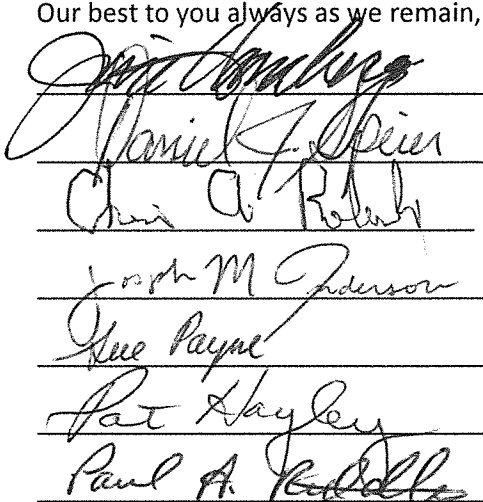 Our best to you always as we remain,
Daniel J. Speier
Chris A. Roberts
Joseph M Anderson
Payne
Pat Hayley
Paul A.